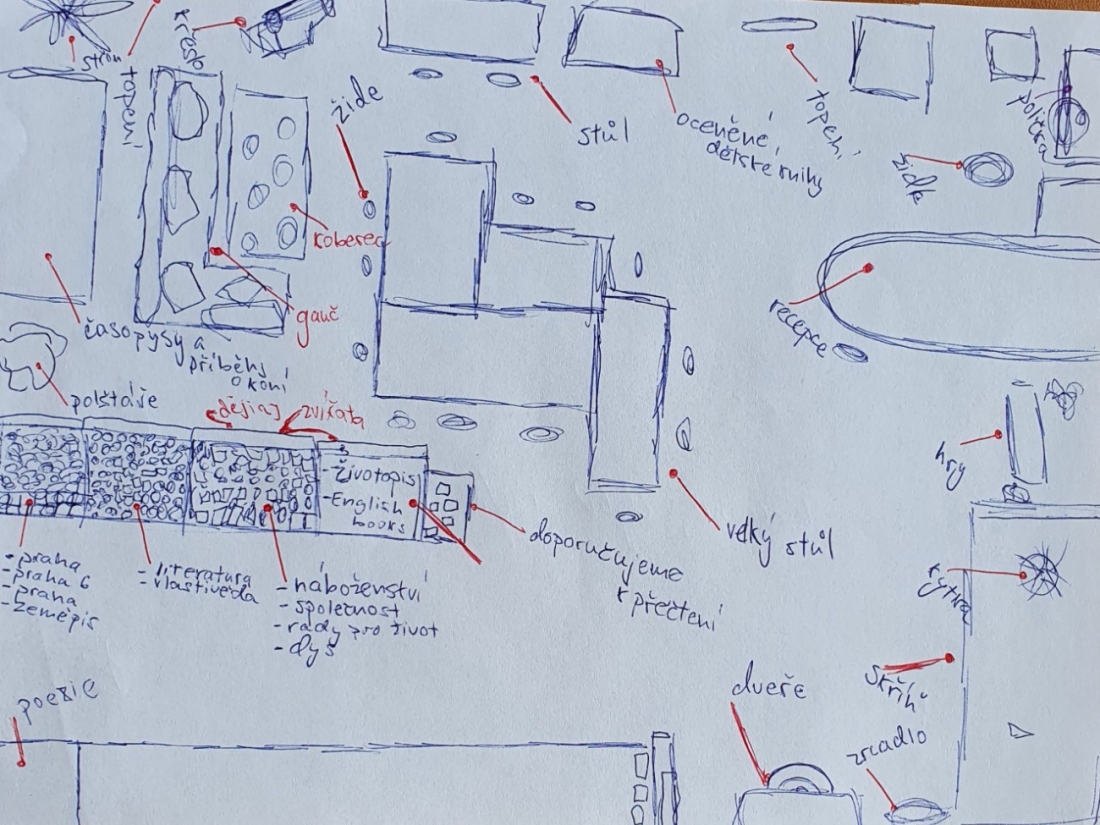 strom
topení
křeslo
žide
stůl
oceněné,
dětske knihy
topení
polička
židle
koberec
gauč
recepce
časopysy a
příběhy
o koní
polštáře
dějiny
zvířata
hry
- životopis
- English
books
doporučujeme
k přečtení
velký stůl
- praha
- praha 6
- praha
- zeměpis
- literatura
- vlastivěda
- náboženství
- společnost
- rady pro život
- dys
kytka
skříň
poezie
dveře
zrcadlo